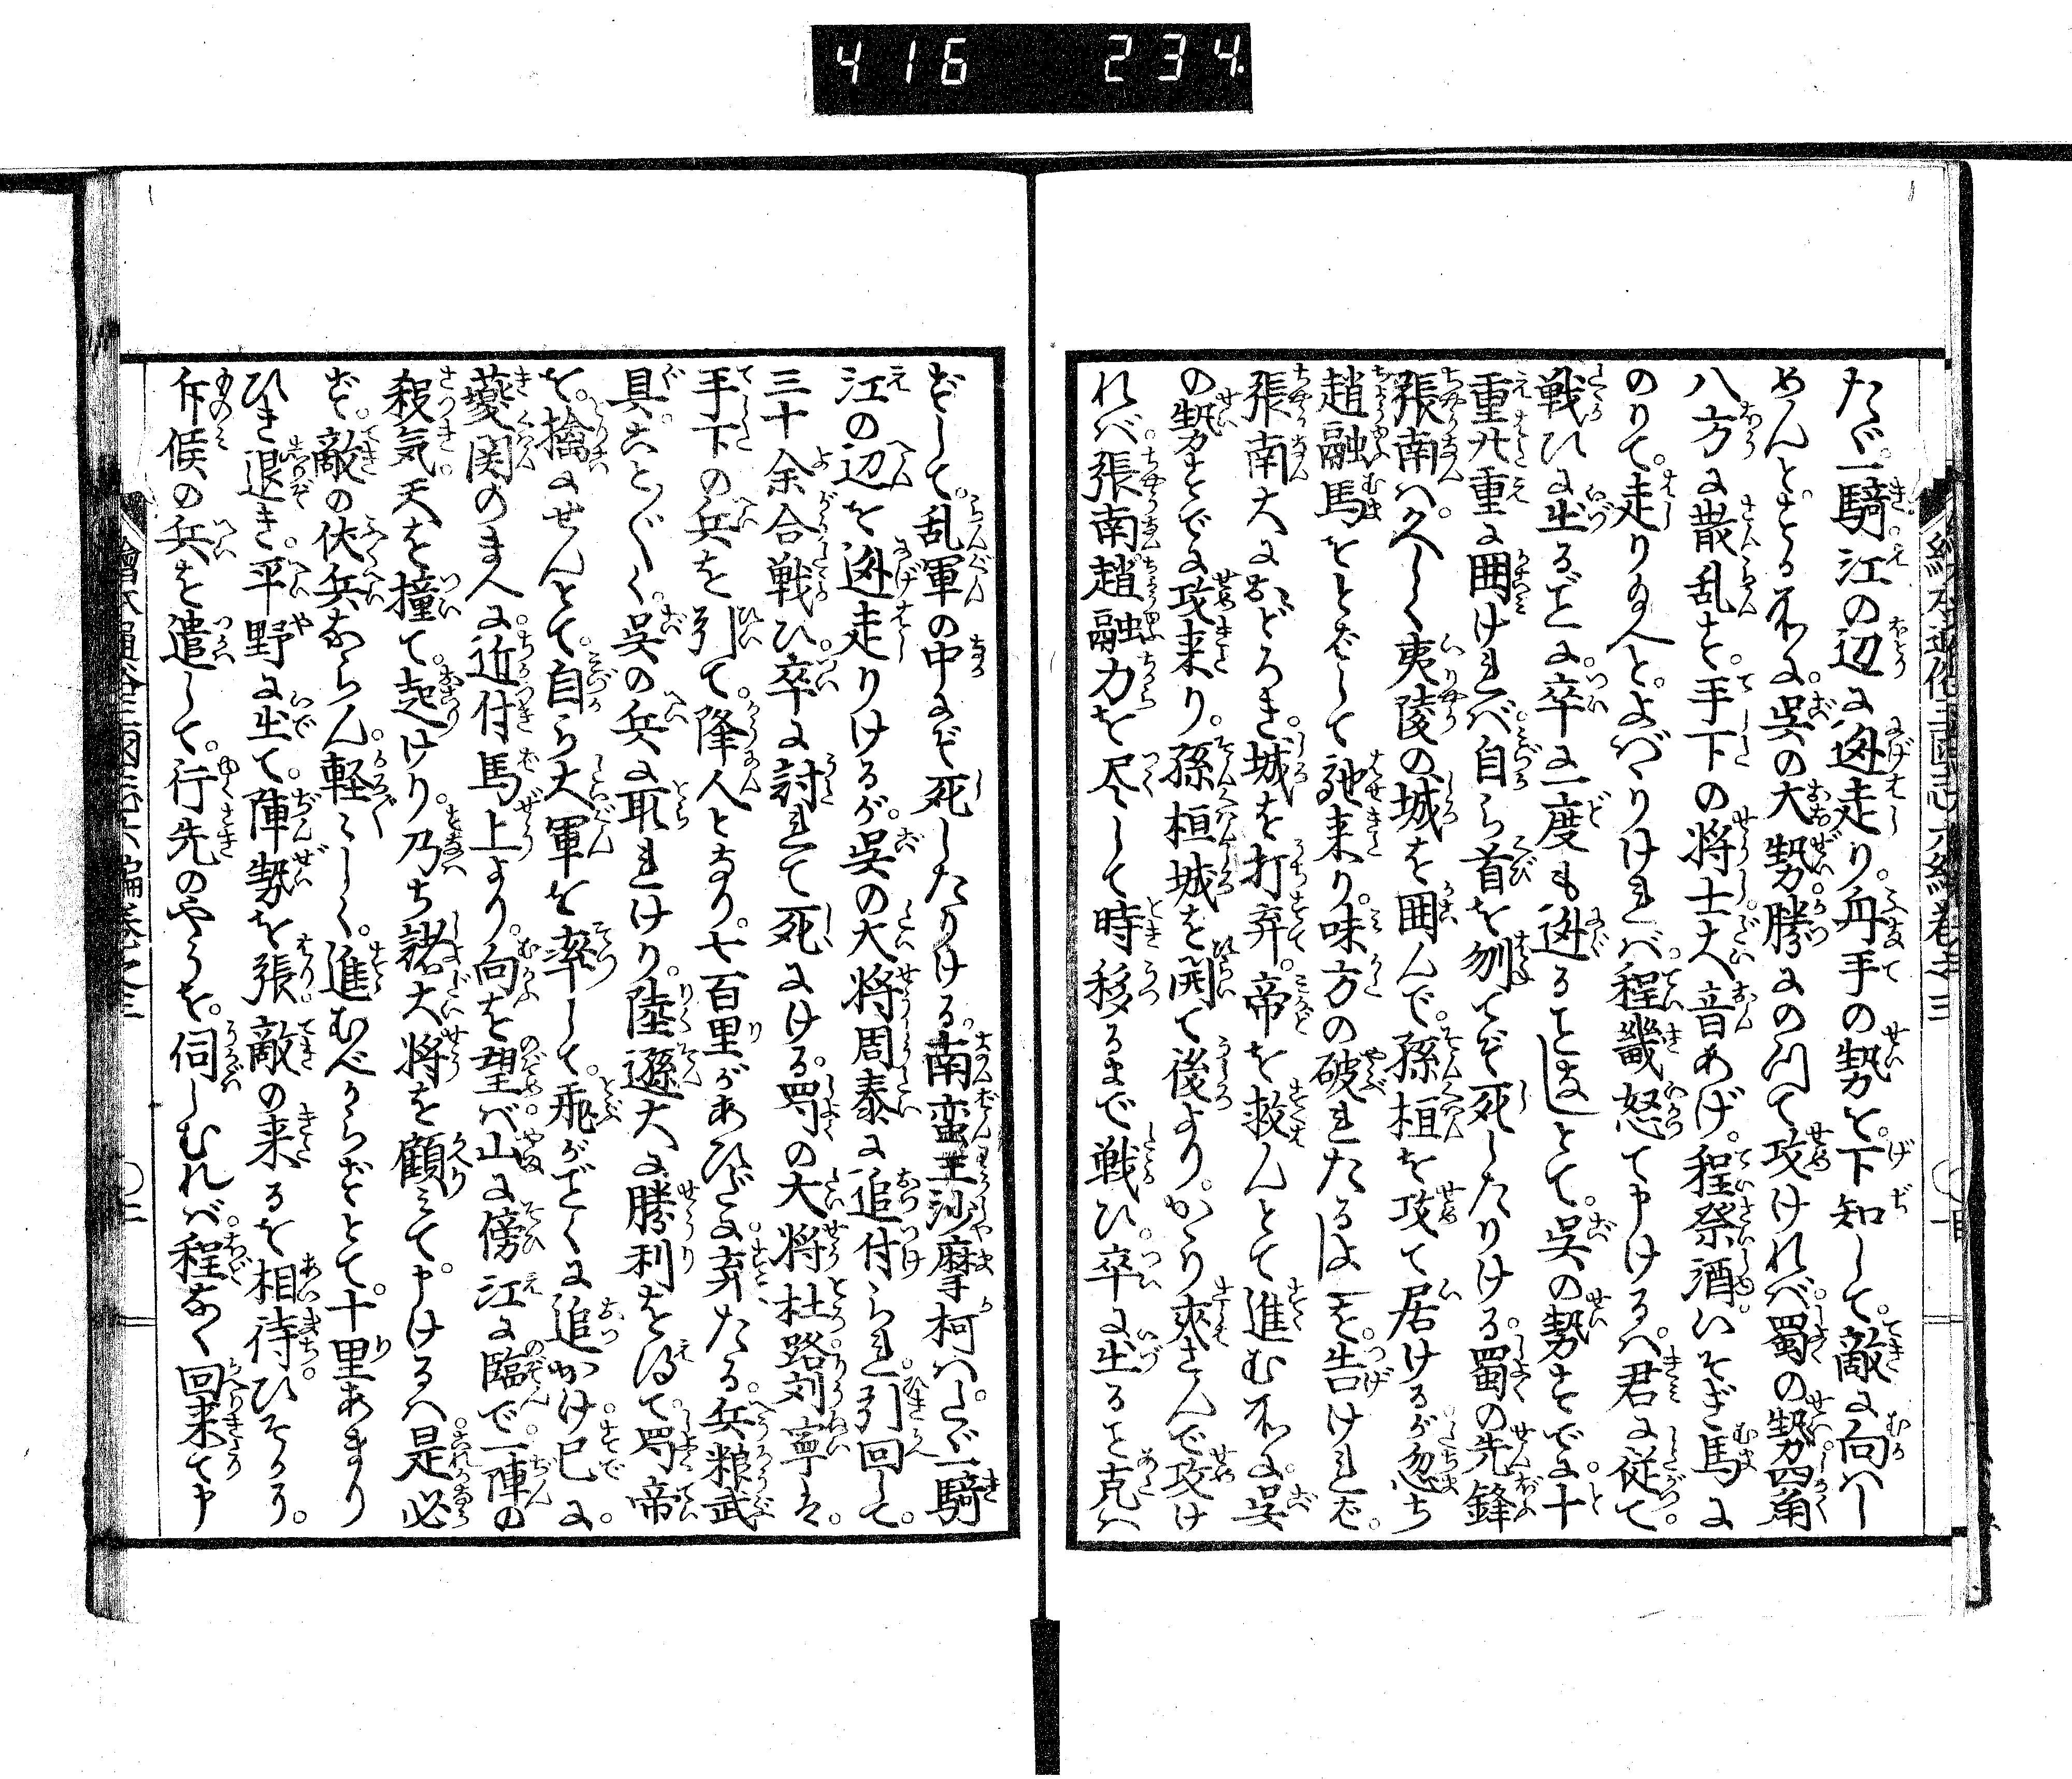 416 234
たゞ一騎江の辺に迯走り舟手の勢を下知して敵に向はし
めんとする所に呉の大勢勝にのつて攻けれバ蜀の勢四角
八方に散乱す手下の将士大音あげ程祭酒いそぎ馬に
のりて走り給へとよバゝりけれバ程畿怒て申けるハ君に従て
戦ひに出ること卒に一度も迯ることなしとて呉の勢すでに十
重廿重に囲けれバ自ら首を刎てぞ死したりける蜀の先鋒
張南ハ久しく夷陵の城を囲んで孫桓を攻て居けるが忽ち
趙融馬をとばして馳来り味方の破れたるよしを告けれバ
張南大におどろき城を打弃帝を救んとて進む所に呉
の勢すでに攻来り孫桓城を開て後よりかゝり夾さんで攻け
れバ張南趙融力を尽して時移るまで戦ひ卒に出ること克ハ
ずして乱軍の中にぞ死したりける南蛮王沙摩柯ハたゞ一騎
江の辺を迯走りけるが呉の大将周泰に追付られ引回して
三十余合戦ひ卒に討れて死にける蜀の大将杜路刘寧は
手下の兵を引て降人となり七百里があひだに弃たる兵粮武
具ことゞく呉の兵に取れけり陸遜大に勝利を得て蜀帝
を擒にせんとて自ら大軍を率して飛がごとくに追かけ已に
夔関のまへに近付馬上より向を望バ山に傍江に臨で一陣の
殺気天を撞て起けり乃ち諸大将を顧ミて申けるハ是必
ず敵の伏兵あらん軽〻しく進むべからずとて十里あまり
ひき退き平野に出て陣勢を張敵の来るを相待ひそかり
斥候の兵を遣して行先のやうを伺しむれバ程なく回来て申